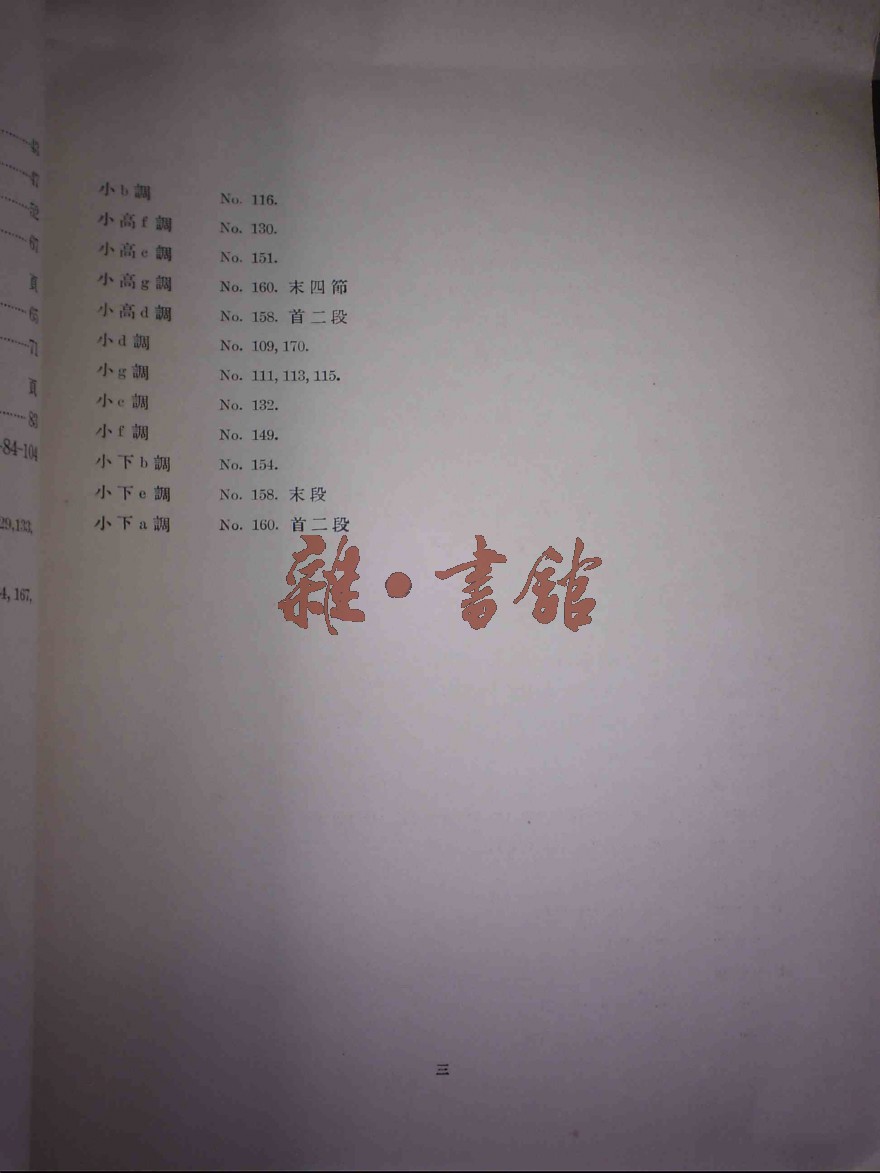 小b調 No. 116.
小高f調 No. 130.
小高c調 No. 151.
小高g調 No. 160. 末四節
小高d調 No. 158. 首二段
小d調 No. 109, 170.
小g調 No. 111, 113, 115.
小c調 No. 132.
小f調 No. 149.
小下b調 No. 154.
小下e調 No. 158. 末段
小下a調 No. 160. 首二段
雜·書館
三
頁
65
71
頁
83
84-104
29,133,
4, 167,